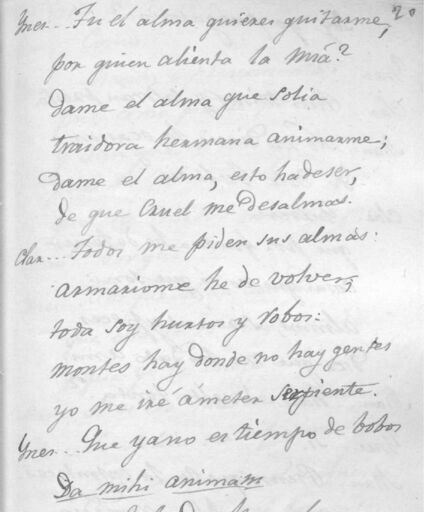 20
Ynes... Tu el alma quieres quitarme,
por quien alienta la mia?
dame el alma que solia
traidora hermana animarme;
dame el alma, esto hadeser,
de que Cruel me desalmas.
Clar... Todos me piden sus almas:
armariome he de volver,
toda soy hurtos y robos:
montes hay donde no hay gentes
yo me iré ámeter serpiente.
Ynes... Que yano es tiempo de bobos
Da mihi animam